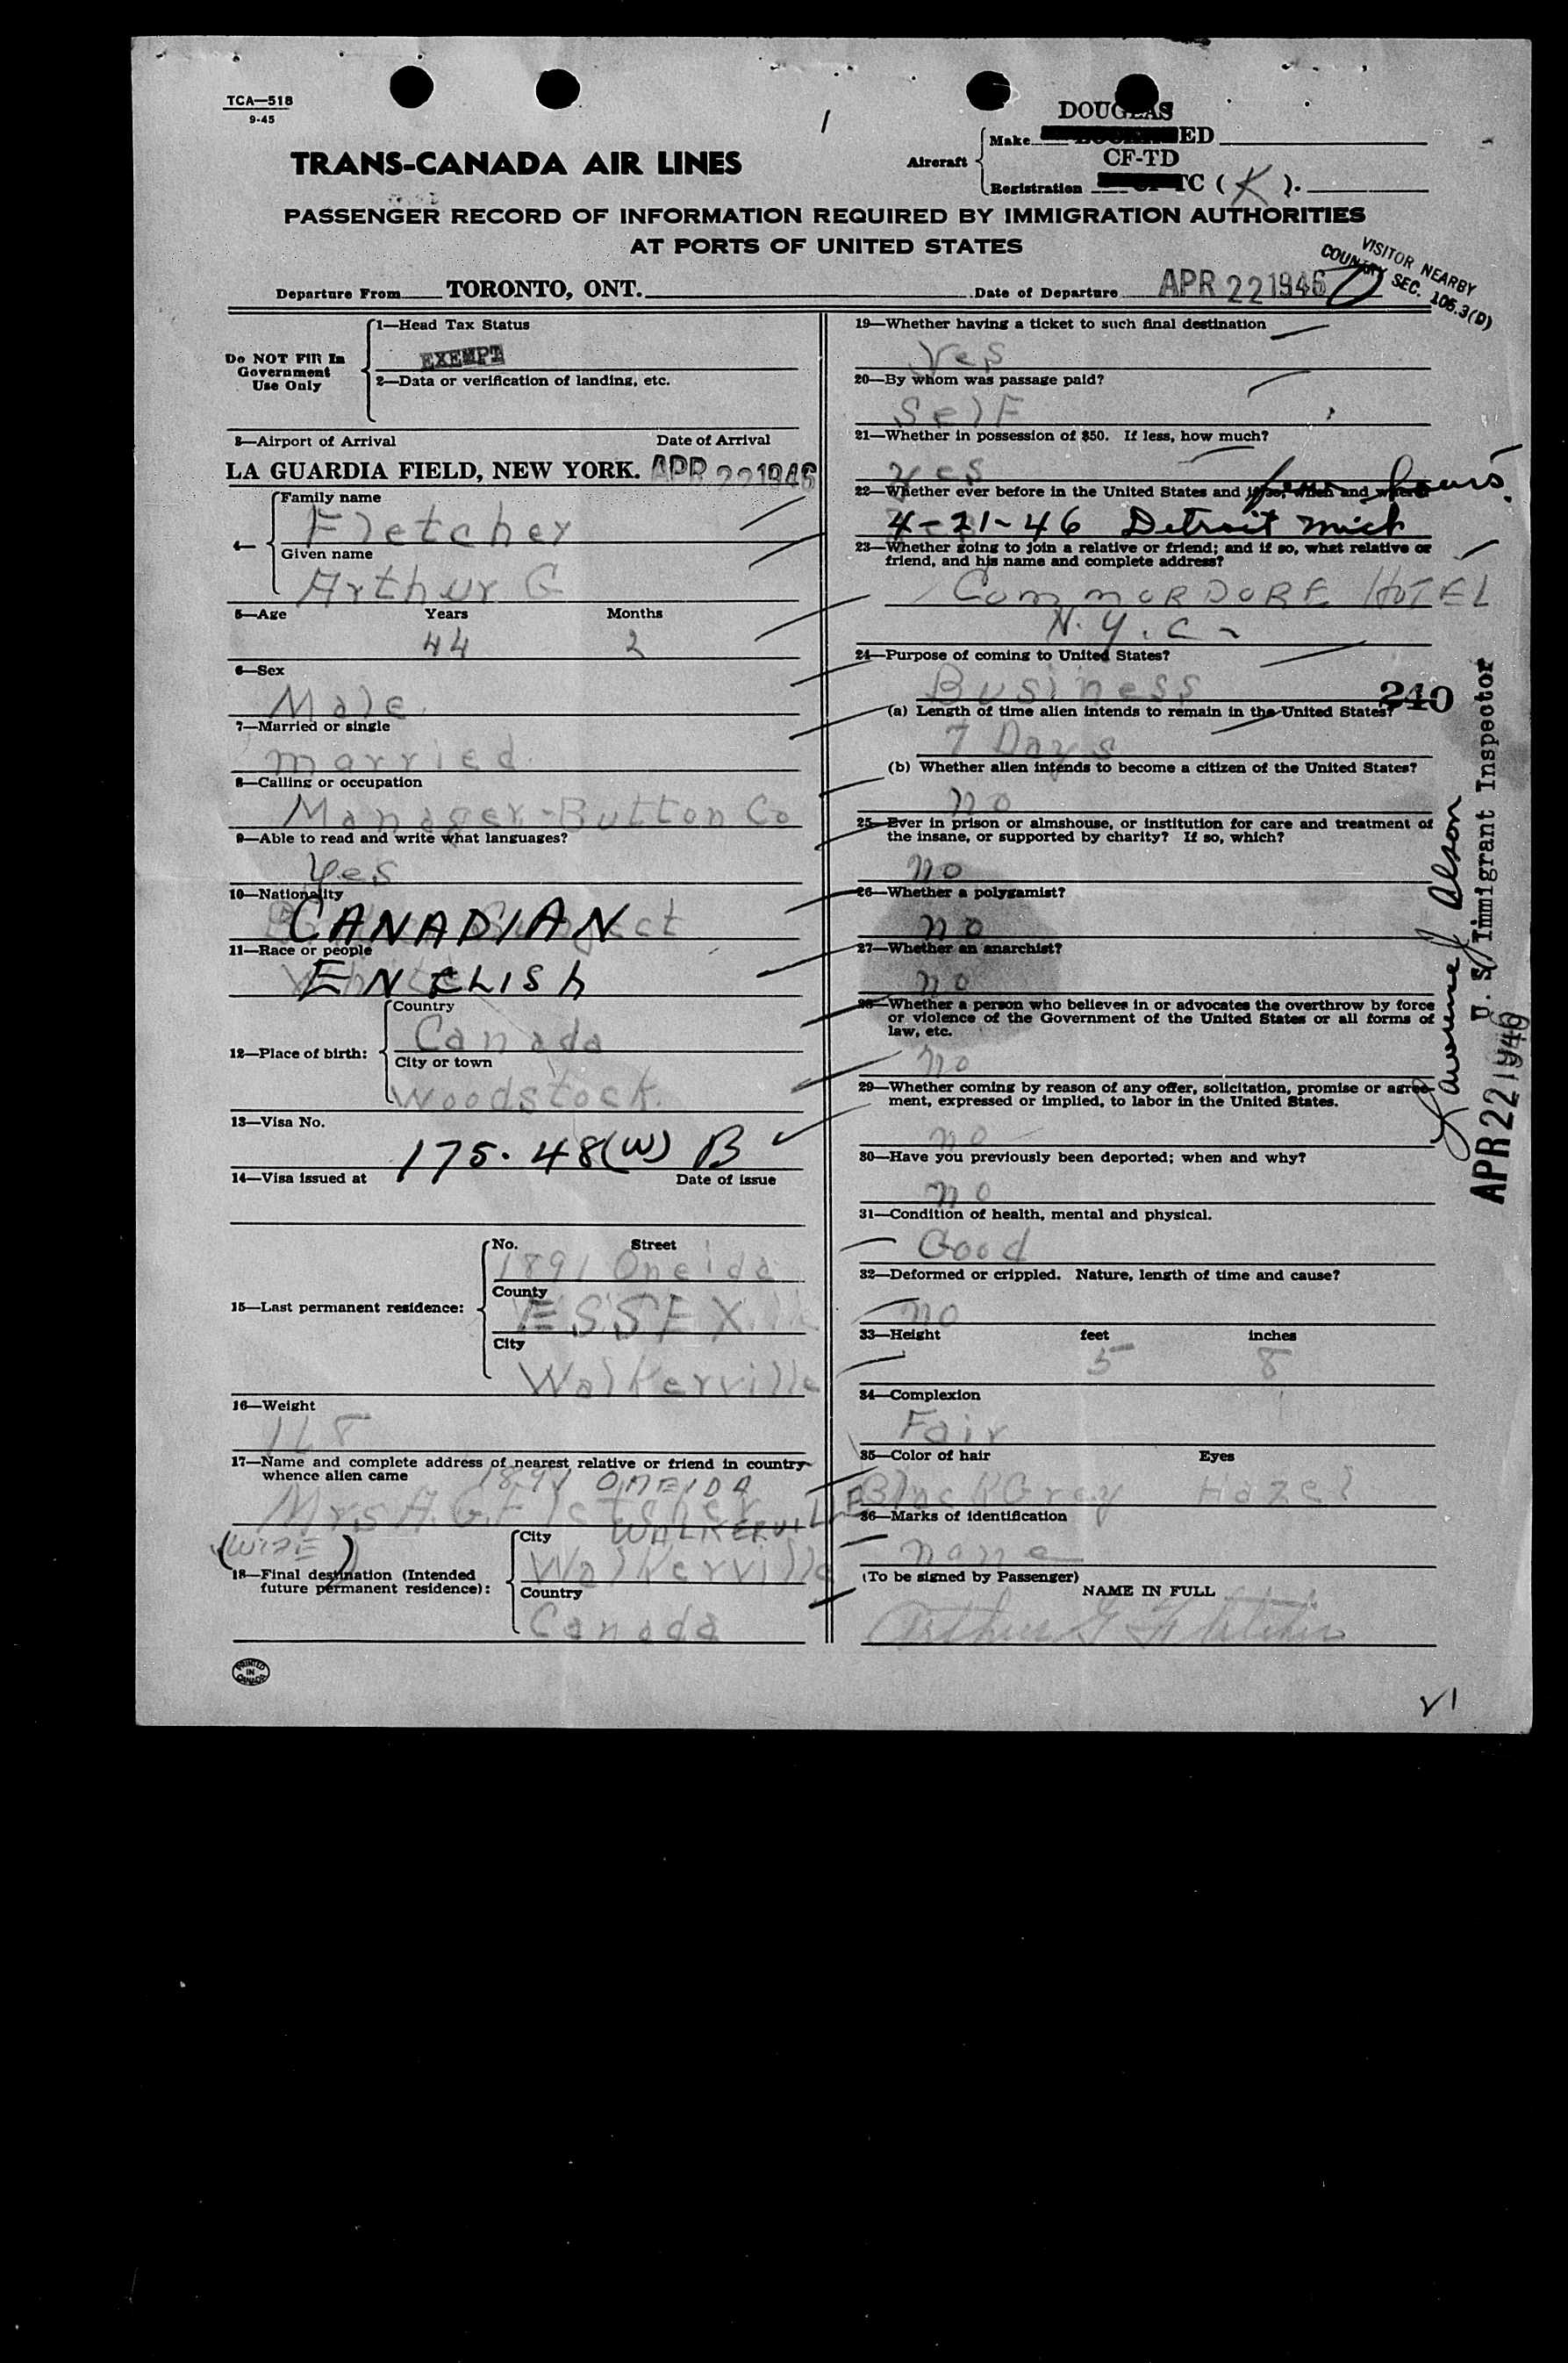 TCA—518
9-45
1
DOUGLAS
Aircraft
Make ED
TRANS-CANADA AIR LINES
CF-TD
Registration TC ( K ).
PASSENGER RECORD OF INFORMATION REQUIRED BY IMMIGRATION AUTHORITIES
AT PORTS OF UNITED STATES
VISITOR NEARBY
COUNTRY SEC. 105.3(D)
Departure From TORONTO, ONT. Date of Departure APR 22 1946
Do NOT Fill In
Government
Use Only
1—Head Tax Status
EXEMPT
2—Data or verification of landing, etc.
3—Airport of Arrival Date of Arrival
LA GUARDIA FIELD, NEW YORK. APR 22 1946
4—
Family name
Fletcher
Given name
Arthur G
5—Age Years Months
44 2
6—Sex
Male
7—Married or single
married
8—Calling or occupation
Manager-Button Co
9—Able to read and write what languages?
Yes
10—Nationality
CANADIAN
11—Race or people
ENGLISH
12—Place of birth:
Country
Canada
City or town
Woodstock.
13—Visa No.
175. 48(W) B
14—Visa issued at Date of issue
15—Last permanent residence:
No. Street
1891 Oneida
County
ESSEX
City
Walkerville
16—Weight
17—Name and complete address of nearest relative or friend in country
whence alien came
1891 ONEIDA
Mrs A. G. Fletcher
WALKERVILLE
(WIFE)
18—Final destination (Intended
future permanent residence):
City
Walkerville
Country
Canada
PRINTED
IN
CANADA
19—Whether having a ticket to such final destination
Yes
20—By whom was passage paid?
Self
21—Whether in possession of $50. If less, how much?
yes
22—Whether ever before in the United States and if so, when and where?
few hours.
4-21-46 Detroit Mich
23—Whether going to join a relative or friend; and if so, what relative or
friend, and his name and complete address?
COMMORDORE HOTEL
N.Y.C-
24—Purpose of coming to United States?
Business
240
(a) Length of time alien intends to remain in the United States?
7 Days
(b) Whether alien intends to become a citizen of the United States?
no
25—Ever in prison or almshouse, or institution for care and treatment of
the insane, or supported by charity? If so, which?
no
26—Whether a polygamist?
no
27—Whether an anarchist?
no
28—Whether a person who believes in or advocates the overthrow by force
or violence of the Government of the United States or all forms of
law, etc.
no
29—Whether coming by reason of any offer, solicitation, promise or agree-
ment, expressed or implied, to labor in the United States.
no
30—Have you previously been deported; when and why?
no
31—Condition of health, mental and physical.
Good
32—Deformed or crippled. Nature, length of time and cause?
no
33—Height feet inches
5 8
34—Complexion
Fair
35—Color of hair Eyes
Black Grey Hazel
36—Marks of identification
none
(To be signed by Passenger)
NAME IN FULL
Arthur G Fletcher
Lawrence J Olson
U. S. Immigrant Inspector
APR 22 1946